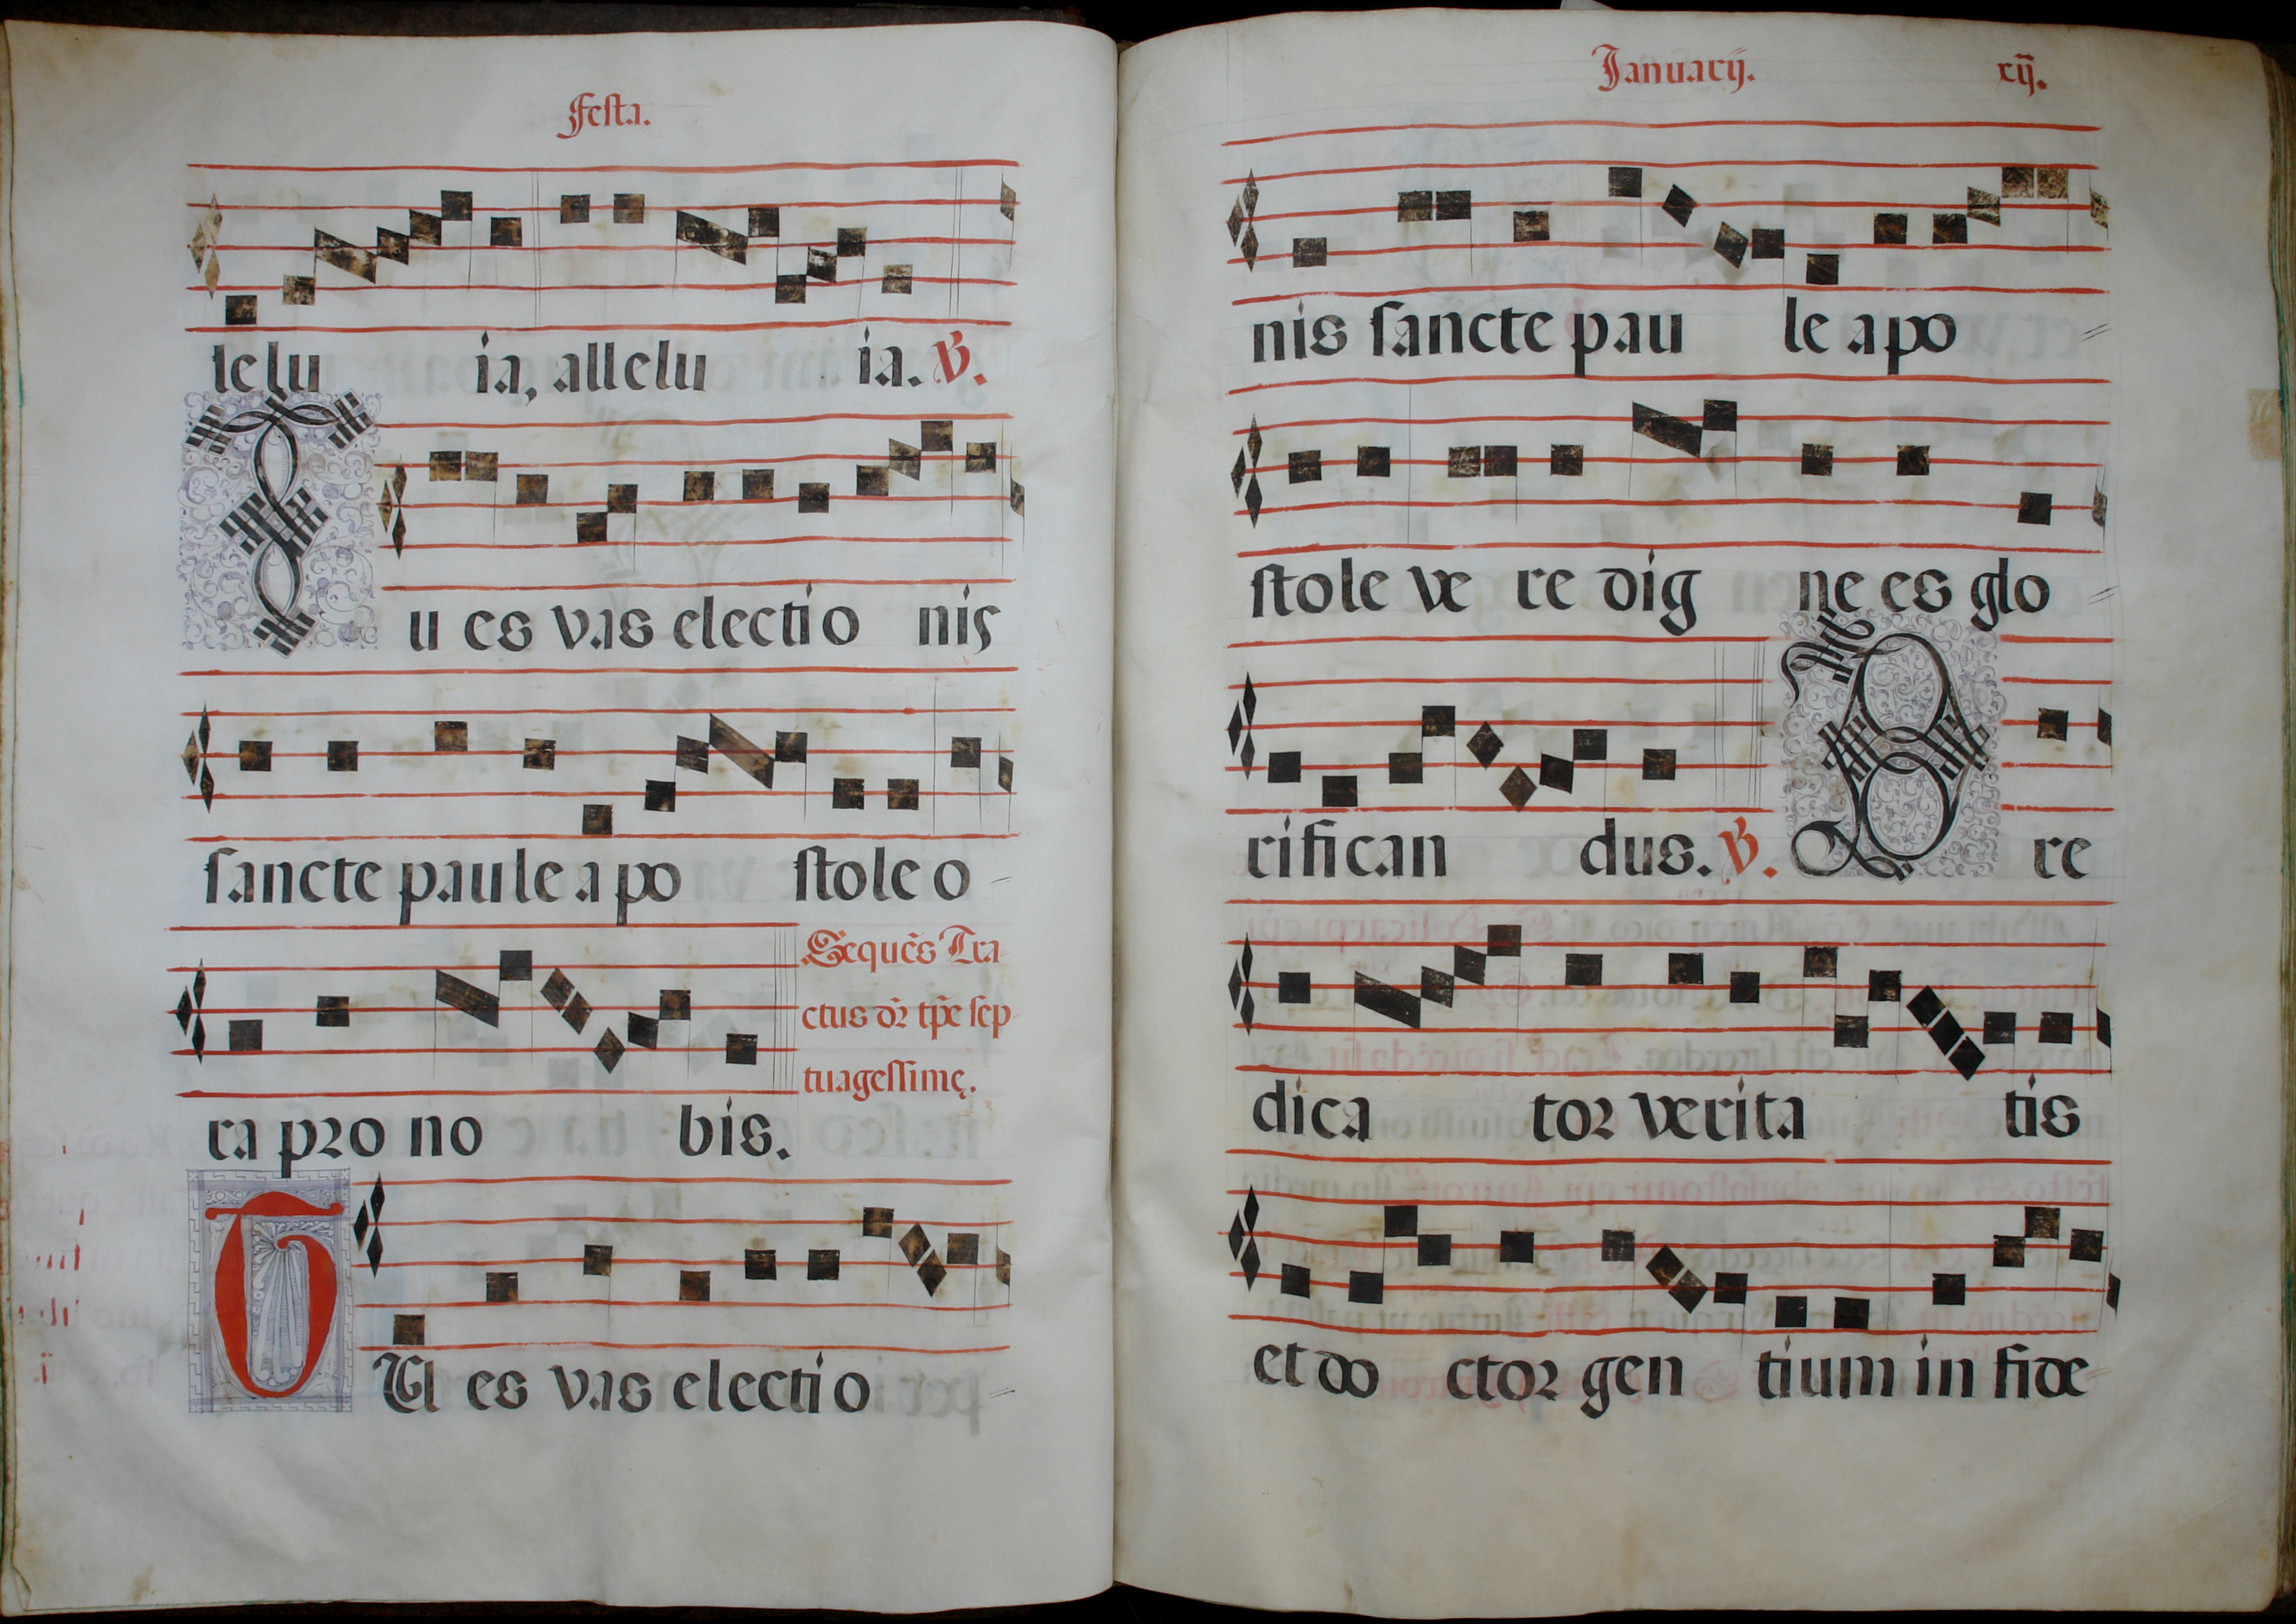 Festa.
lelu ia, allelu ia. ℣.
Tu es vas electio nis
sancte paule apo stole o
Sequēs Tra
ctus dr̄ tp̄e sep
tuagessimę.
ra pro no bis.
TU es vas electio
Januarij. xij.
nis sancte pau le apo
stole ve re dig ne es glo
rifican dus. ℣. Pre
dica tor verita tis
et do ctor gen tium in fide